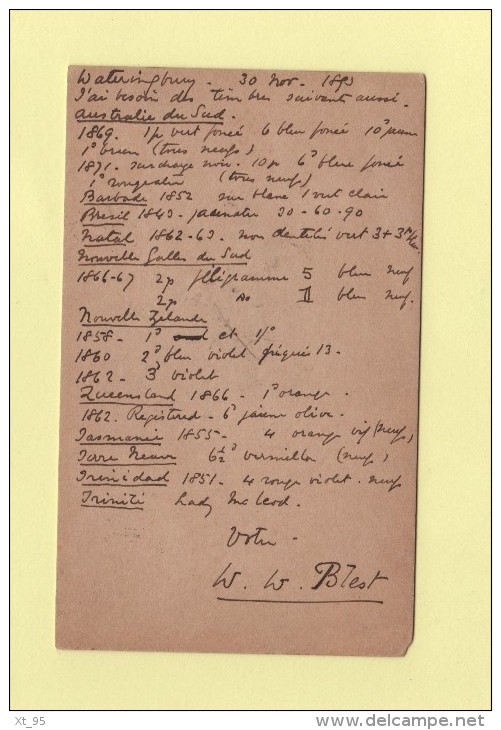 Wateringbury - 30 Nov. 1893
J'ai besoin des timbres suivants aussi -
Australie du Sud.
1869. 1/- vert foncé 6 bleu foncé 10ᵈ jaune
1ᵈ brun (tous neufs)
1871. surcharge noir. 10/- 6ᵈ bleu foncé
1ᵈ (tous neuf)
Barbade 1852 sur blanc 1 vert clair
Bresil 1843 - 30 - 60 - 90
Natal 1862-63. non dentelé vert 3 + 3
Nouvelle Galles du Sud
1866-67 2p filigramme 5 bleu neuf
2p do II bleu neuf.
Nouvelle Zelande
1858 - 1ᵈ et 1/-
1860 2ᵈ bleu violet 13 -
1862 - 3ᵈ violet
Queensland 1866 - 1ᵈ orange -
1862. Registered - 6ᵈ jaune olive -
Tasmanie 1855 - 4 orange vif (neuf)
Terre Neuve 6½ᵈ vermillon (neuf)
Trinidad 1851 - 4 rouge violet - neuf
Triniti Lady McLeod.
Votre -
W. W. Blest
Xt_95
www.delcampe.net